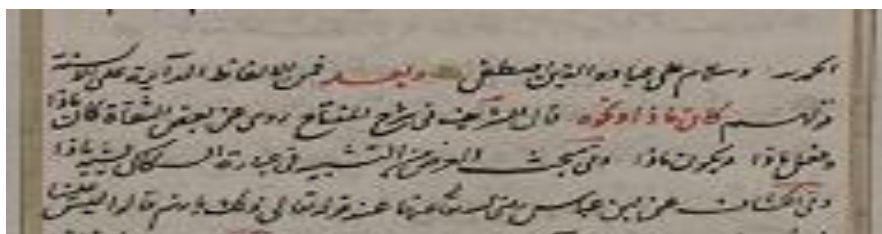 الحمد لله وسلام على عباده الذين اصطفى وبعد فمن الالفاظ الدائرة على الالسنة
قولهم كان ماذا ونحوه قال الشريف في شرح المفتاح روى عن بعض النحاة كان ماذا
وفعل ماذا ويكون ماذا وفي مبحث الغرض من التشبيه في عبارة السكاكي ليشبه ماذا
وفي الكشاف عن ابن عباس رضي الله عنهما عند قوله تعالى ذلك بانهم قالوا ليس علينا